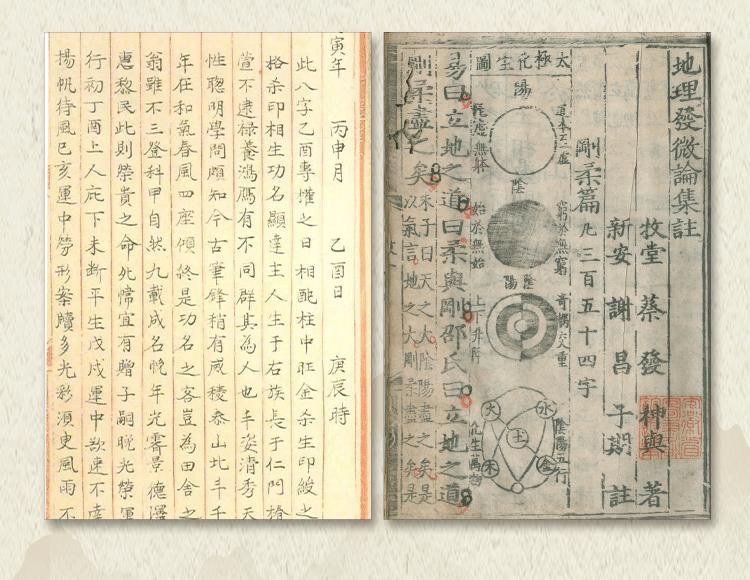 地理發微論集註
牧堂 蔡發 神與 著
新安 謝昌 子期 註
剛柔篇 凡三百五十四字
太極化生圖
陽
陰
窮於無窮
始於無始
陰陽
上下升
水
火
土
金
木
陰陽五行
化生萬物
易曰立地之道曰柔與剛邵氏曰立地之道
剛柔盡之矣
朱子曰天之大陰陽盡之矣是
以氣言地之大剛柔盡之矣是
寅年 丙申月 乙酉日 庚辰時
此八字乙酉專權之日相配柱中旺金杀生印綬之
格杀印相生功名顯達主人生于右族長于仁門椿
萱不逮祿養鴻鴈有不同群其為人也丰姿清秀天
性聰明學問頗知今古筆鋒稍有威稜泰山北斗千
年在和氣春風四座傾終是功名之客豈為田舍之
翁雖不三登科甲自然九載成名晚年光霽景德澤
惠黎民此則榮貴之命幃宜有贈子嗣晚光榮運
行初丁酉上人庇下未斷平生戊戌運中欲速不達
揚帆待風己亥運中勞形案牘多光彩須更風雨不